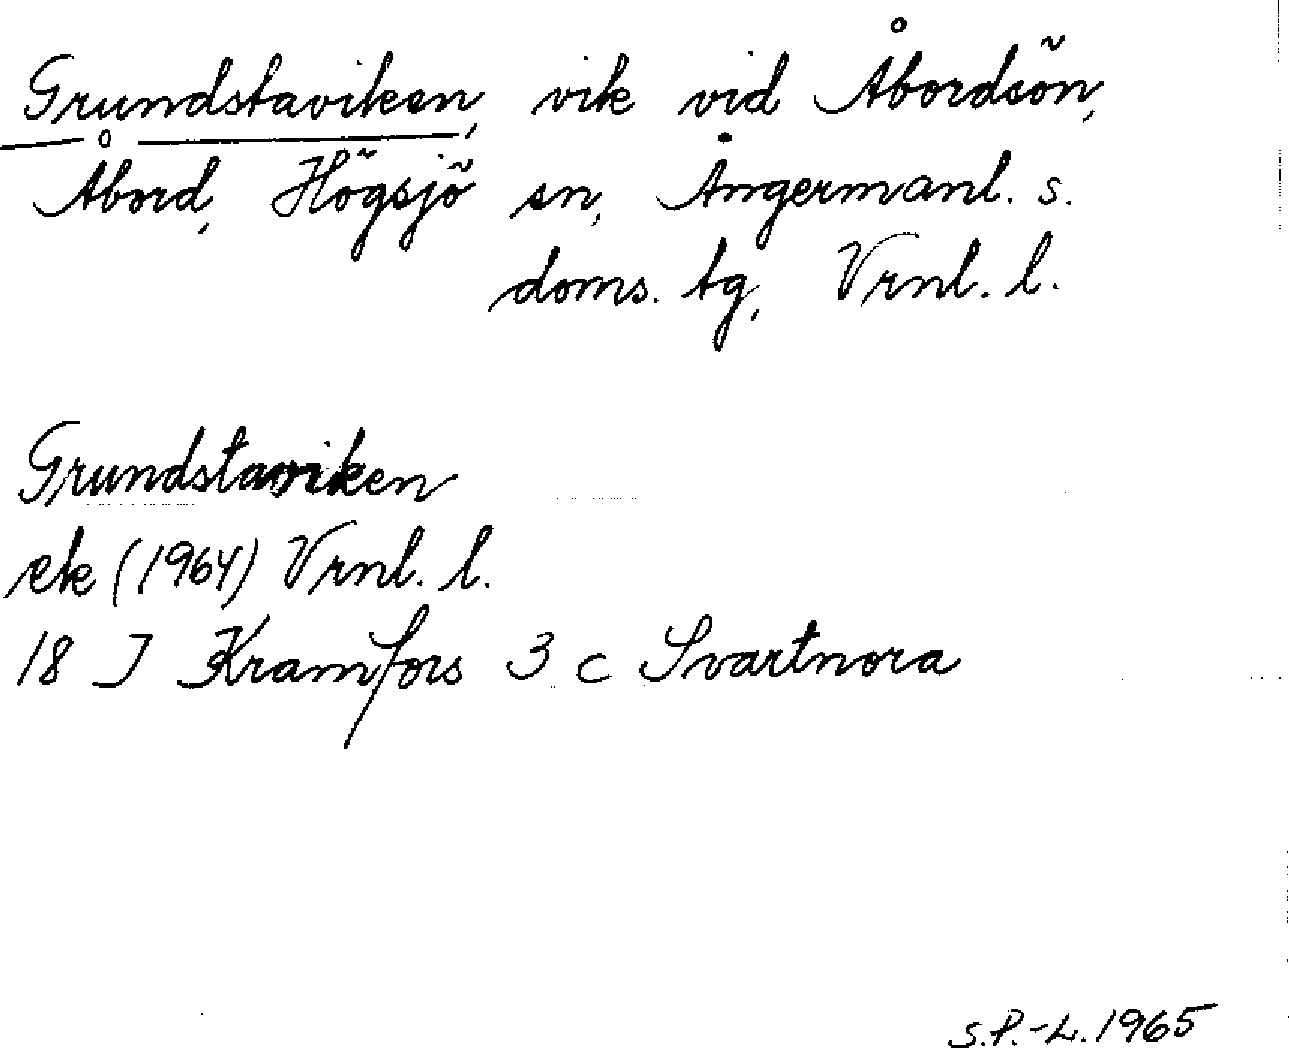 Grundstaviken, vik vid Åbordsön,
Åbord, Högsjö sn, Ångermanl. s.
doms. tg, Vrnl. l.
Grundstaviken
ek (1964) Vrnl. l.
18 I Kramfors 3 c Svartnora
S.P.-L. 1965